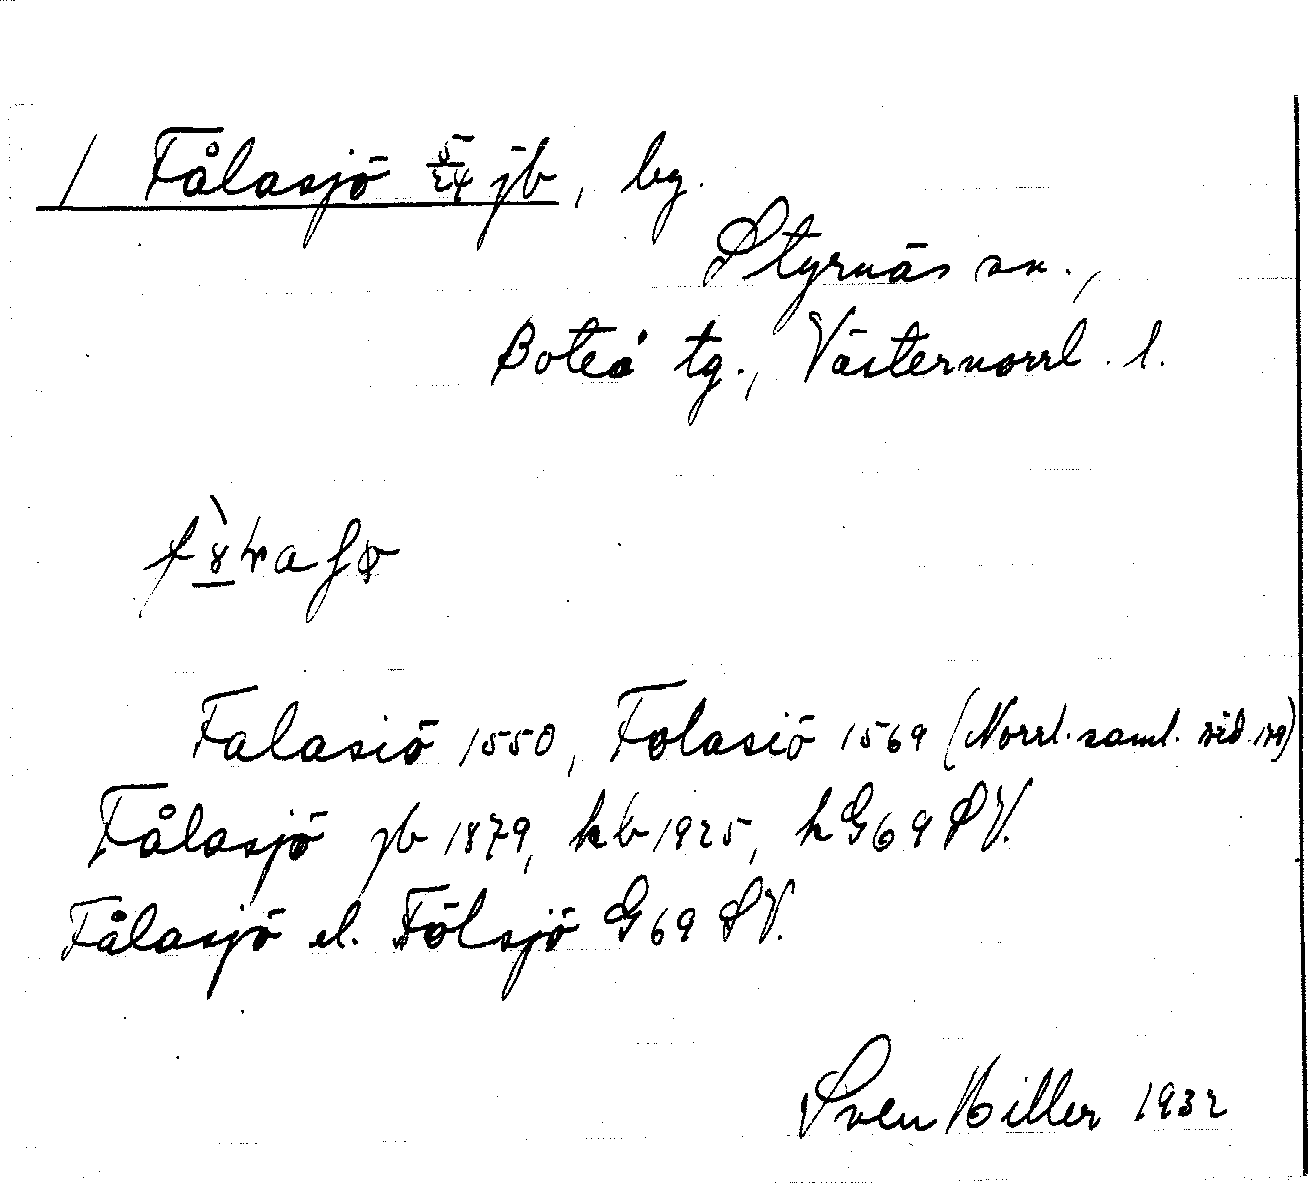 1 Fålasjö 5/24 jb, by.
Styrnäs sn.,
Boteå tg., Västernorrl. l.
Falasiö 1550, Folasiö 1569 (Norrl. saml. sid.
Fålasjö jb 1879, kb 1925, hG69 SV.
Fålasjö el. Fölsjö G69 SV.
Sven Hiller 1932